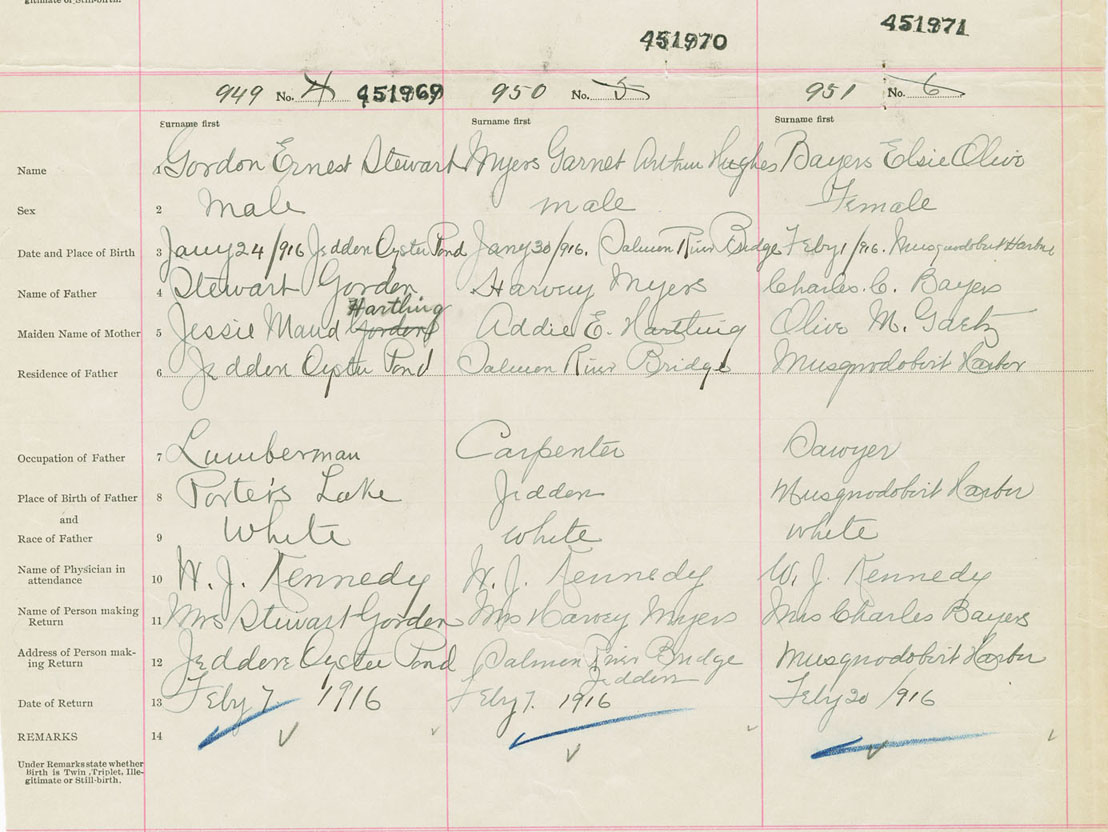 gitimate or Still-birth.
451970
451971
949 No. 4 451969
950 No. 5
951 No. 6
Surname first
Surname first
Surname first
Name 1 Gordon Ernest Stewart Myers Garnet Arthur Hughes Bayers Elsie Olive
Sex 2 Male male Female
Date and Place of Birth 3 Jany 24/916 Jeddon Oyster Pond Jany 30/916. Salmon River Bridge Feby 1/916. Musqnodobiot Harbor
Name of Father 4 Stewart Gorden Harvey Myers Charles. C. Bayers
Harthing
Maiden Name of Mother 5 Jessie Maud Gorden Addie E. Hartling Olive M. Gaetz
Residence of Father 6 Jeddon Oyster Pond Salmon River Bridge Musqnodobiot Harbor
Occupation of Father 7 Lumberman Carpenter Sawyer
Place of Birth of Father 8 Porter's Lake Jeddon Musqnodobiot Harbor
and
Race of Father 9 White White White
Name of Physician in
attendance 10 W. J. Kennedy W. J. Kennedy W. J. Kennedy
Name of Person making
Return 11 Mrs Stewart Gorden Mrs Harvey Myers Mrs Charles Bayers
Address of Person mak-
ing Return 12 Jeddore Oyster Pond Salmon River Bridge Musqnodobiot Harbor
Jeddon
Date of Return 13 Feby 7. 1916 Feby 7. 1916 Feby 20/916
REMARKS 14
Under Remarks state whether
Birth is Twin, Triplet, Ille-
gitimate or Still-birth.